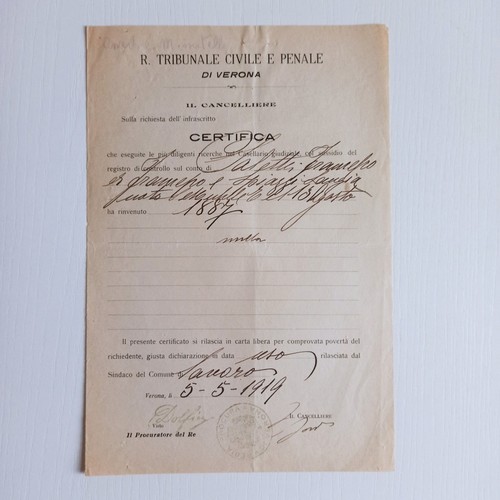 R. TRIBUNALE CIVILE E PENALE
DI VERONA
IL CANCELLIERE
Sulla richiesta dell' infrascritto
CERTIFICA
che eseguite le più diligenti ricerche nel Casellario giudiziale, col sussidio del
registro di controllo sul conto di Francesco
fu Francesco e
13 Agosto
ha rinvenuto 1887
nulla
Il presente certificato si rilascia in carta libera per comprovata povertà del
richiedente, giusta dichiarazione in data uso rilasciata dal
Sindaco del Comune di Lavoro
Verona, li 5-5-1919
Visto
IL CANCELLIERE
Il Procuratore del Re